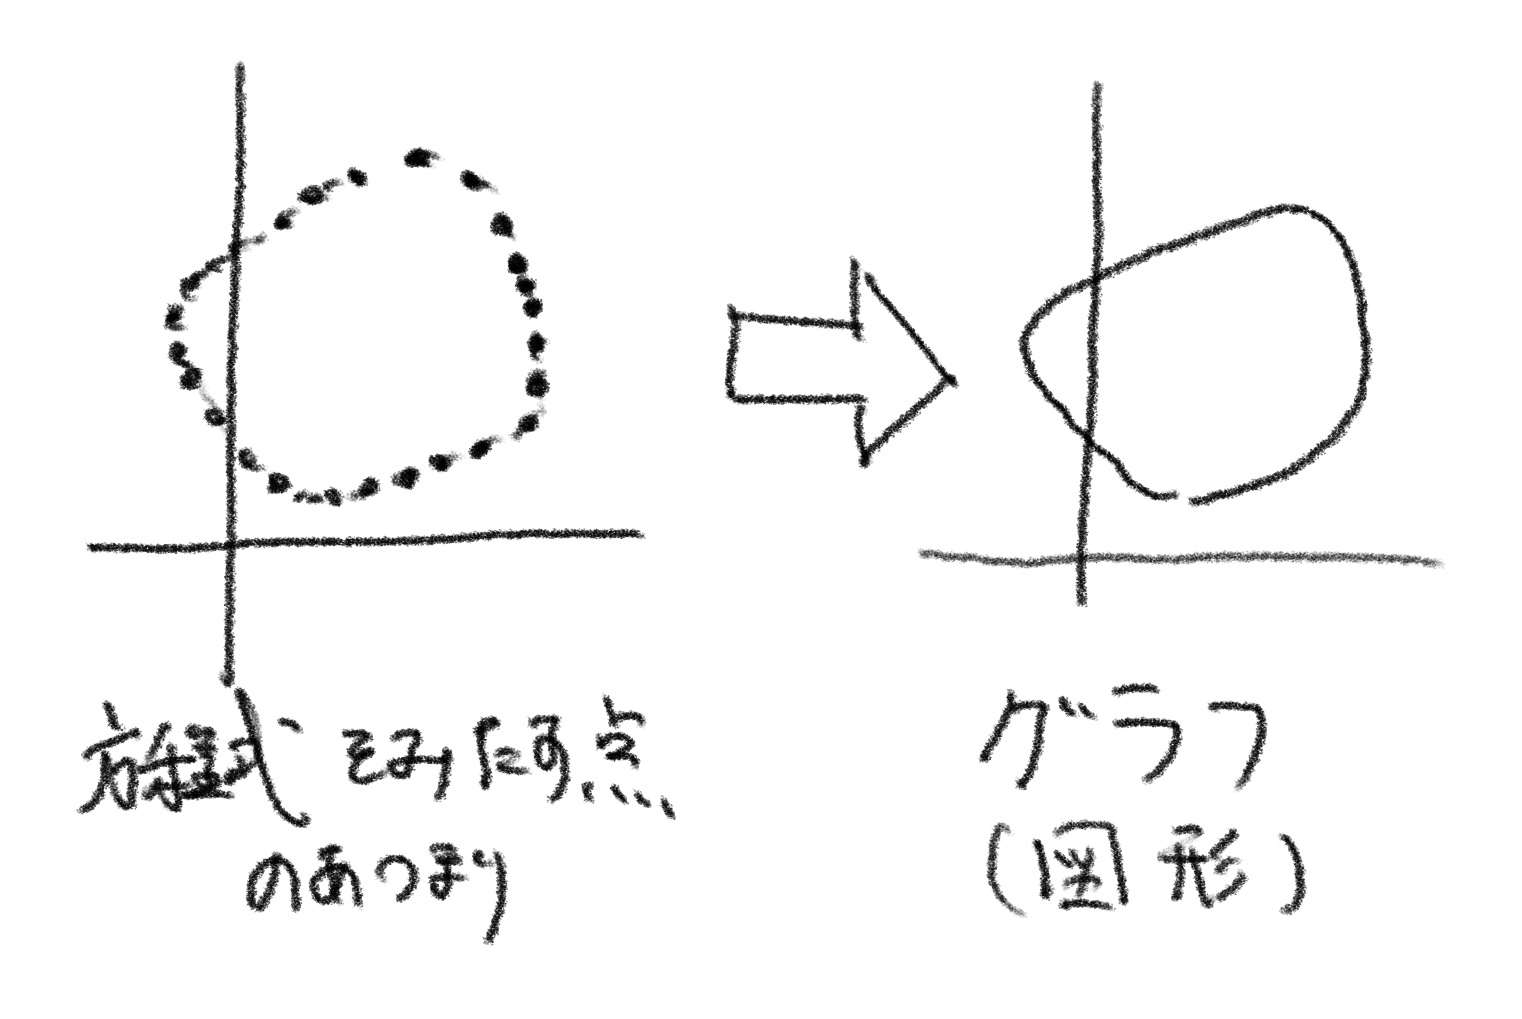 方程式をみたす点
のあつまり
グラフ
(図形)